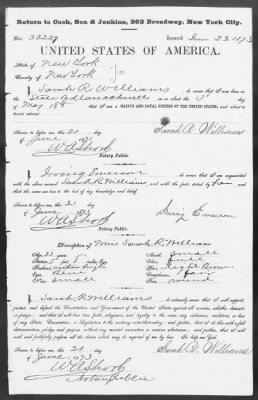 Return to Cook, Son & Jenkins, 262 Broadway, New York City.
No. 30229 Issued June 23 1873
UNITED STATES OF AMERICA.
State of New York
County of New York ss.
I, Sarah R Williams, do swear that I was born in the
State of Massachusetts, on or about the day
of May 18; that I am a NATIVE AND LOYAL CITIZEN OF THE UNITED STATES, and about to
travel abroad.
Sarah R. Williams
Sworn to before me, this 21 day
of June 1873
W A Shook
Notary Public.
I, Irving Emerson, do swear that I am acquainted
with the above named Sarah R Williams, and with the facts stated by her, and
that the same are true to the best of my knowledge and belief.
Sworn to before me, this 21
of June 1873
Irving Emerson
W A Shook
Notary Public.
Description of Mrs Sarah R. Williams
Age, 23 years Mouth, small
Stature, 5 feet, inches, Eng. Chin,
Forehead, Hair, Light Brown
Eyes, Blue Complexion, Fair
Nose, small Face, round
I, Sarah R Williams, do solemnly swear that I will support,
protect, and defend the Constitution and Government of the United States against all enemies, whether domestic
or foreign; and that I will bear true faith, allegiance, and loyalty to the same, any ordinance, resolution, or law
of any State, Convention, or Legislature to the contrary notwithstanding; and further, that I do this with a full
determination, pledge, and purpose, without any mental reservation or evasion whatsoever; and further, that I will
well and faithfully perform all the duties which may be required of me by law. So help me God.
Sarah R. Williams
Sworn to before me, this 21 day
of June 1873
W A Shook
Notary Public